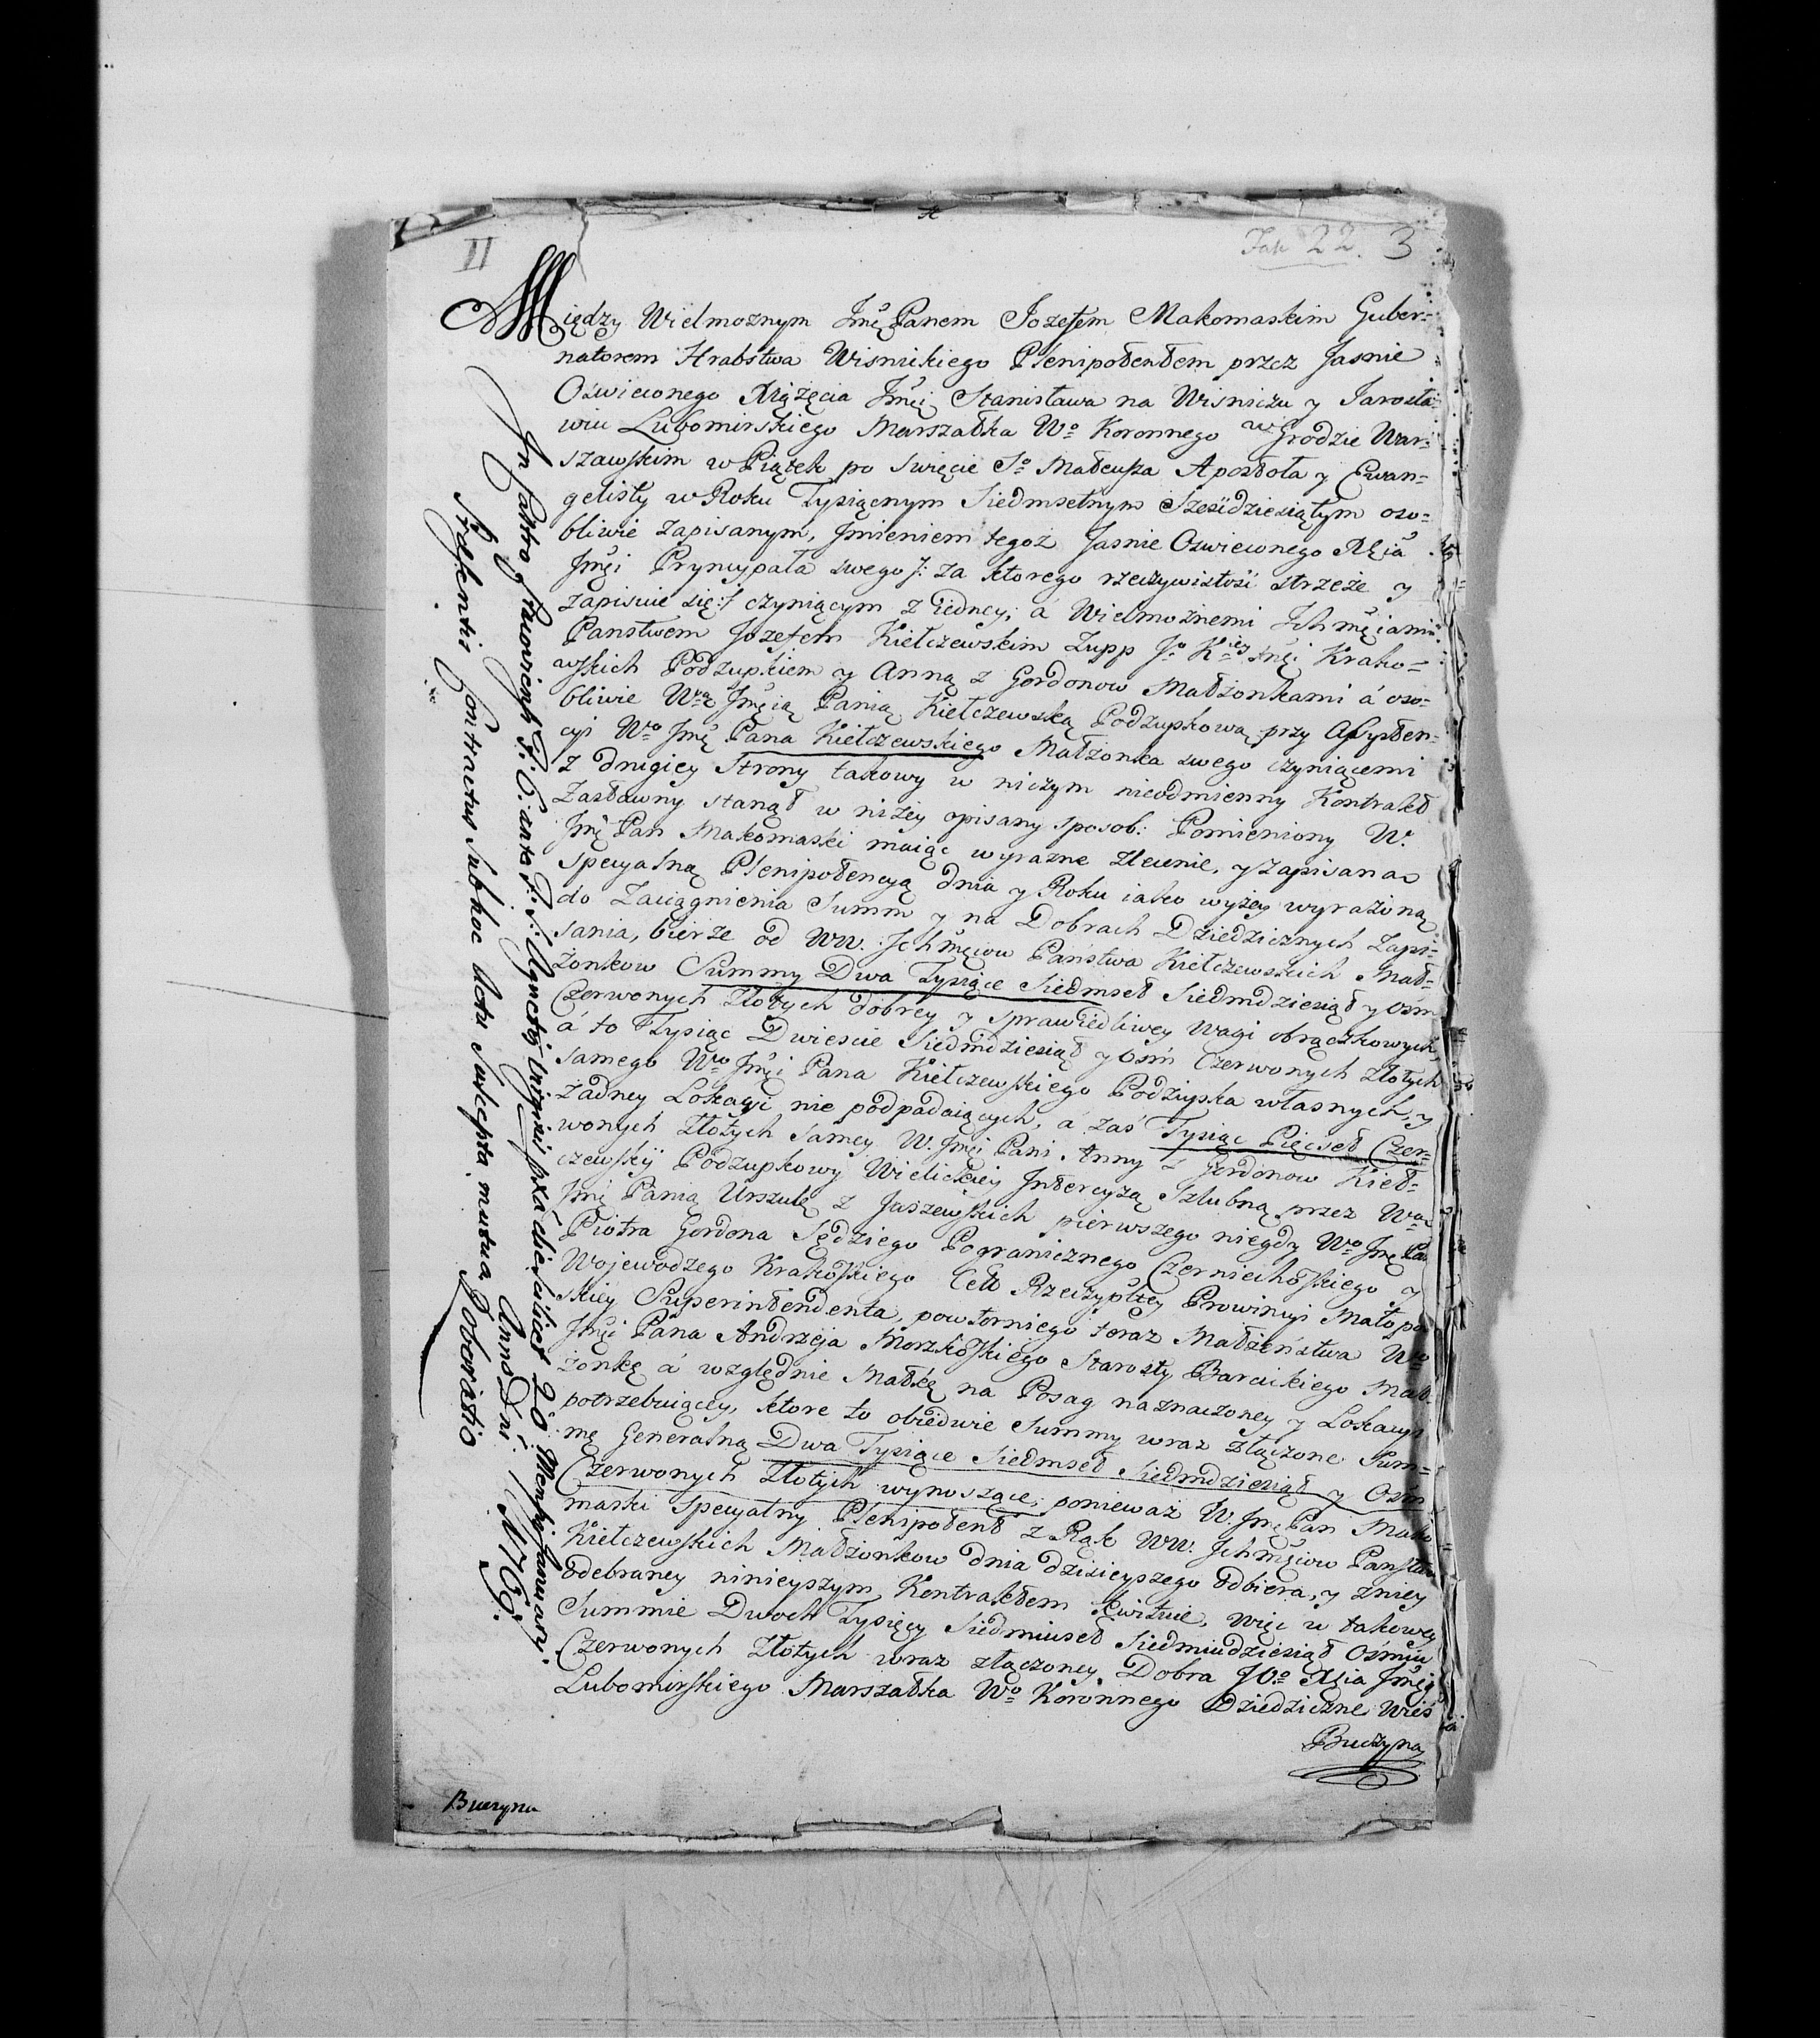 II
22. 3
Między Wielmożnym Jmę Panem Jozefem Makomaskim Guber=
natorem Hrabstwa Wisnickiego Plenipotentem przez Jasnie
Oświeconego Xiążęcia Jmći Stanisława na Wisniczu y Jarosła
wiu Lubomirskiego Marszałka Wo Koronnego w Grodzie War=
szawskim w Piątek po Święcie So Mateusza Apostoła y Ewan=
gelisty w Roku Tysiącnym Siedmsetnym Sześćdziesiątym oso=
bliwie zapisanym, Jmieniem tegoż Jasnie Oswieconego Xcia
Jmći Pryncypała swego /: za ktorego rzeczywistość strzeże y
zapisuie się :/ czyniącym z iedney; á Wielmożnemi Ichmciami
Panstwem Jozefem Kiełczewskim Zupp Jo Kiey Mći Krako=
wskich Podżupkiem y Anną z Gordonow Małżonkami á oso=
bliwie Wną Jmcią Panią Kiełczewską Podżupkową przy Assysten=
cyi Wo Jmę Pana Kiełczewskiego Małżonka swego czyniącemi
z drugiey Strony takowy w niczym nieodmienny Kontrakt
Zastawny stanął w niżey opisany sposob: Pomieniony W.
Jmę Pan Makomaski maiąc wyrazne zlecenie, y zapisaną
specyalną Plenipotencyą dnia y Roku iako wyżey wyrażoną
do Zaciągnienia Summ y na Dobrach Dziedzicznych Zapi=
sania, bierze od WW. Ichmciow Państwa Kiełczewskich Mał=
żonkow Summy Dwa Tysiące Siedmset Siedmdziesiąt y Ośm
Czerwonych Złotych dobrey y sprawiedliwey Wagi obrączkowych,
á to Tysiąc Dwieście Siedmdziesiąt y Ośm Czerwonych Złotych
samego Wo Jmći Pana Kiełczewskiego Podżupka własnych, y
żadney Lokacyi nie podpadaiących, á zaś Tysiąc Pięcset Czer=
wonych Złotych Samey W. Jmći Pani Anny z Gordonow Kieł=
czewskiy Podzupkowy Wielickiey Intercyzą Szlubną przez Wną
Jmę Panią Urszulę z Jaszewskich pierwszego niegdy Wo Jmę Pa
Piotra Gordona Sędziego Pogranicznego Czerniechoskiego y
Wojewodzego Krakoskiego Cełł Rzeczypltey Prowincyi Małopo
skiey Superintendenta, powtorniego teraz Małżeństwa Wo
Jmći Pana Andrzeja Morzkoskiego Starosty Barcickiego Mał=
żonkę á względnie Matkę na Posag naznaczoney y Lokacyi
potrzebuiącey, ktore to obiedwie Summy wraz złączone Sum=
mę Generalną Dwa Tysiące Siedmset Siedmdziesiąt y Ośm
Czerwonych Złotych wynoszące; ponieważ W. Jmę Pan Mako
maski Specyalny Plenipotent z Rąk WW. Ichmciow Panstwa
Kiełczewskich Małżonkow dnia dzisieyszego odbiera, y zniey
odebraney ninieyszym Kontraktem kwituie, więc w takowey
Summie Dwoch Tysięcy Siedmiuset Siedmiudziesiąt Ośmiu
Czerwonych Złotych wraz złączoney Dobra JOo Xcia Jmći
Lubomirskiego Marszałka Wo Koronnego Dziedziczne Wieś
Buczyna
Buczyna
In Castro Cracoviensi F. 6. ante F. S. Agnetis Virginis puta die scilicet 20 Mensis Januarij.
Anno Dni. 1763.
Praesentis Contractus sub hoc Actu suscepta mutua Roboratio